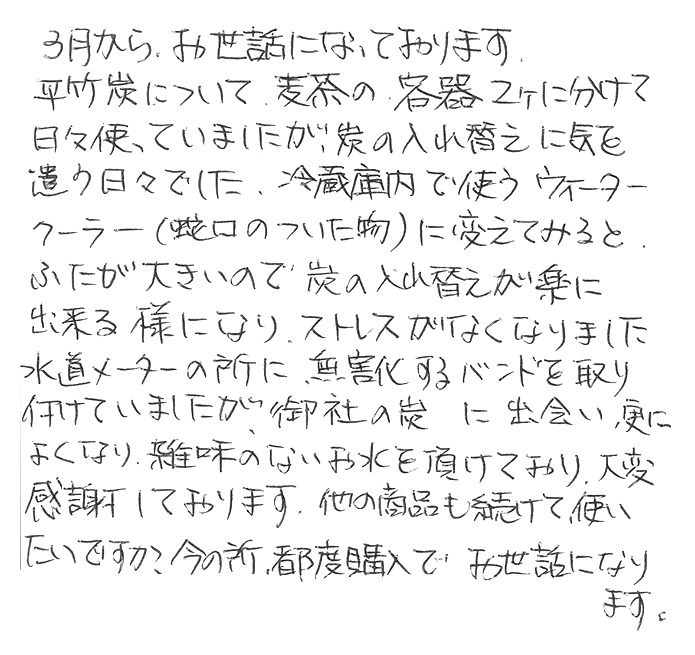 3月から、お世話になっております。
平竹炭について、麦茶の容器2ケに分けて
日々使っていましたが、炭の入れ替えに気を
遣う日々でした、冷蔵庫内で使うウォーター
クーラー(蛇口のついた物)に変えてみると、
ふたが大きいので炭の入れ替えが楽に
出来る様になり、ストレスがなくなりました
水道メーターの所に、無害化するバンドを取り
付けていましたが、御社の炭 に出会い、更に
よくなり、雑味のないお水を頂けており、大変
感謝しております。他の商品も続けて、使い
たいですが、今の所、都度購入で お世話になり
ます。